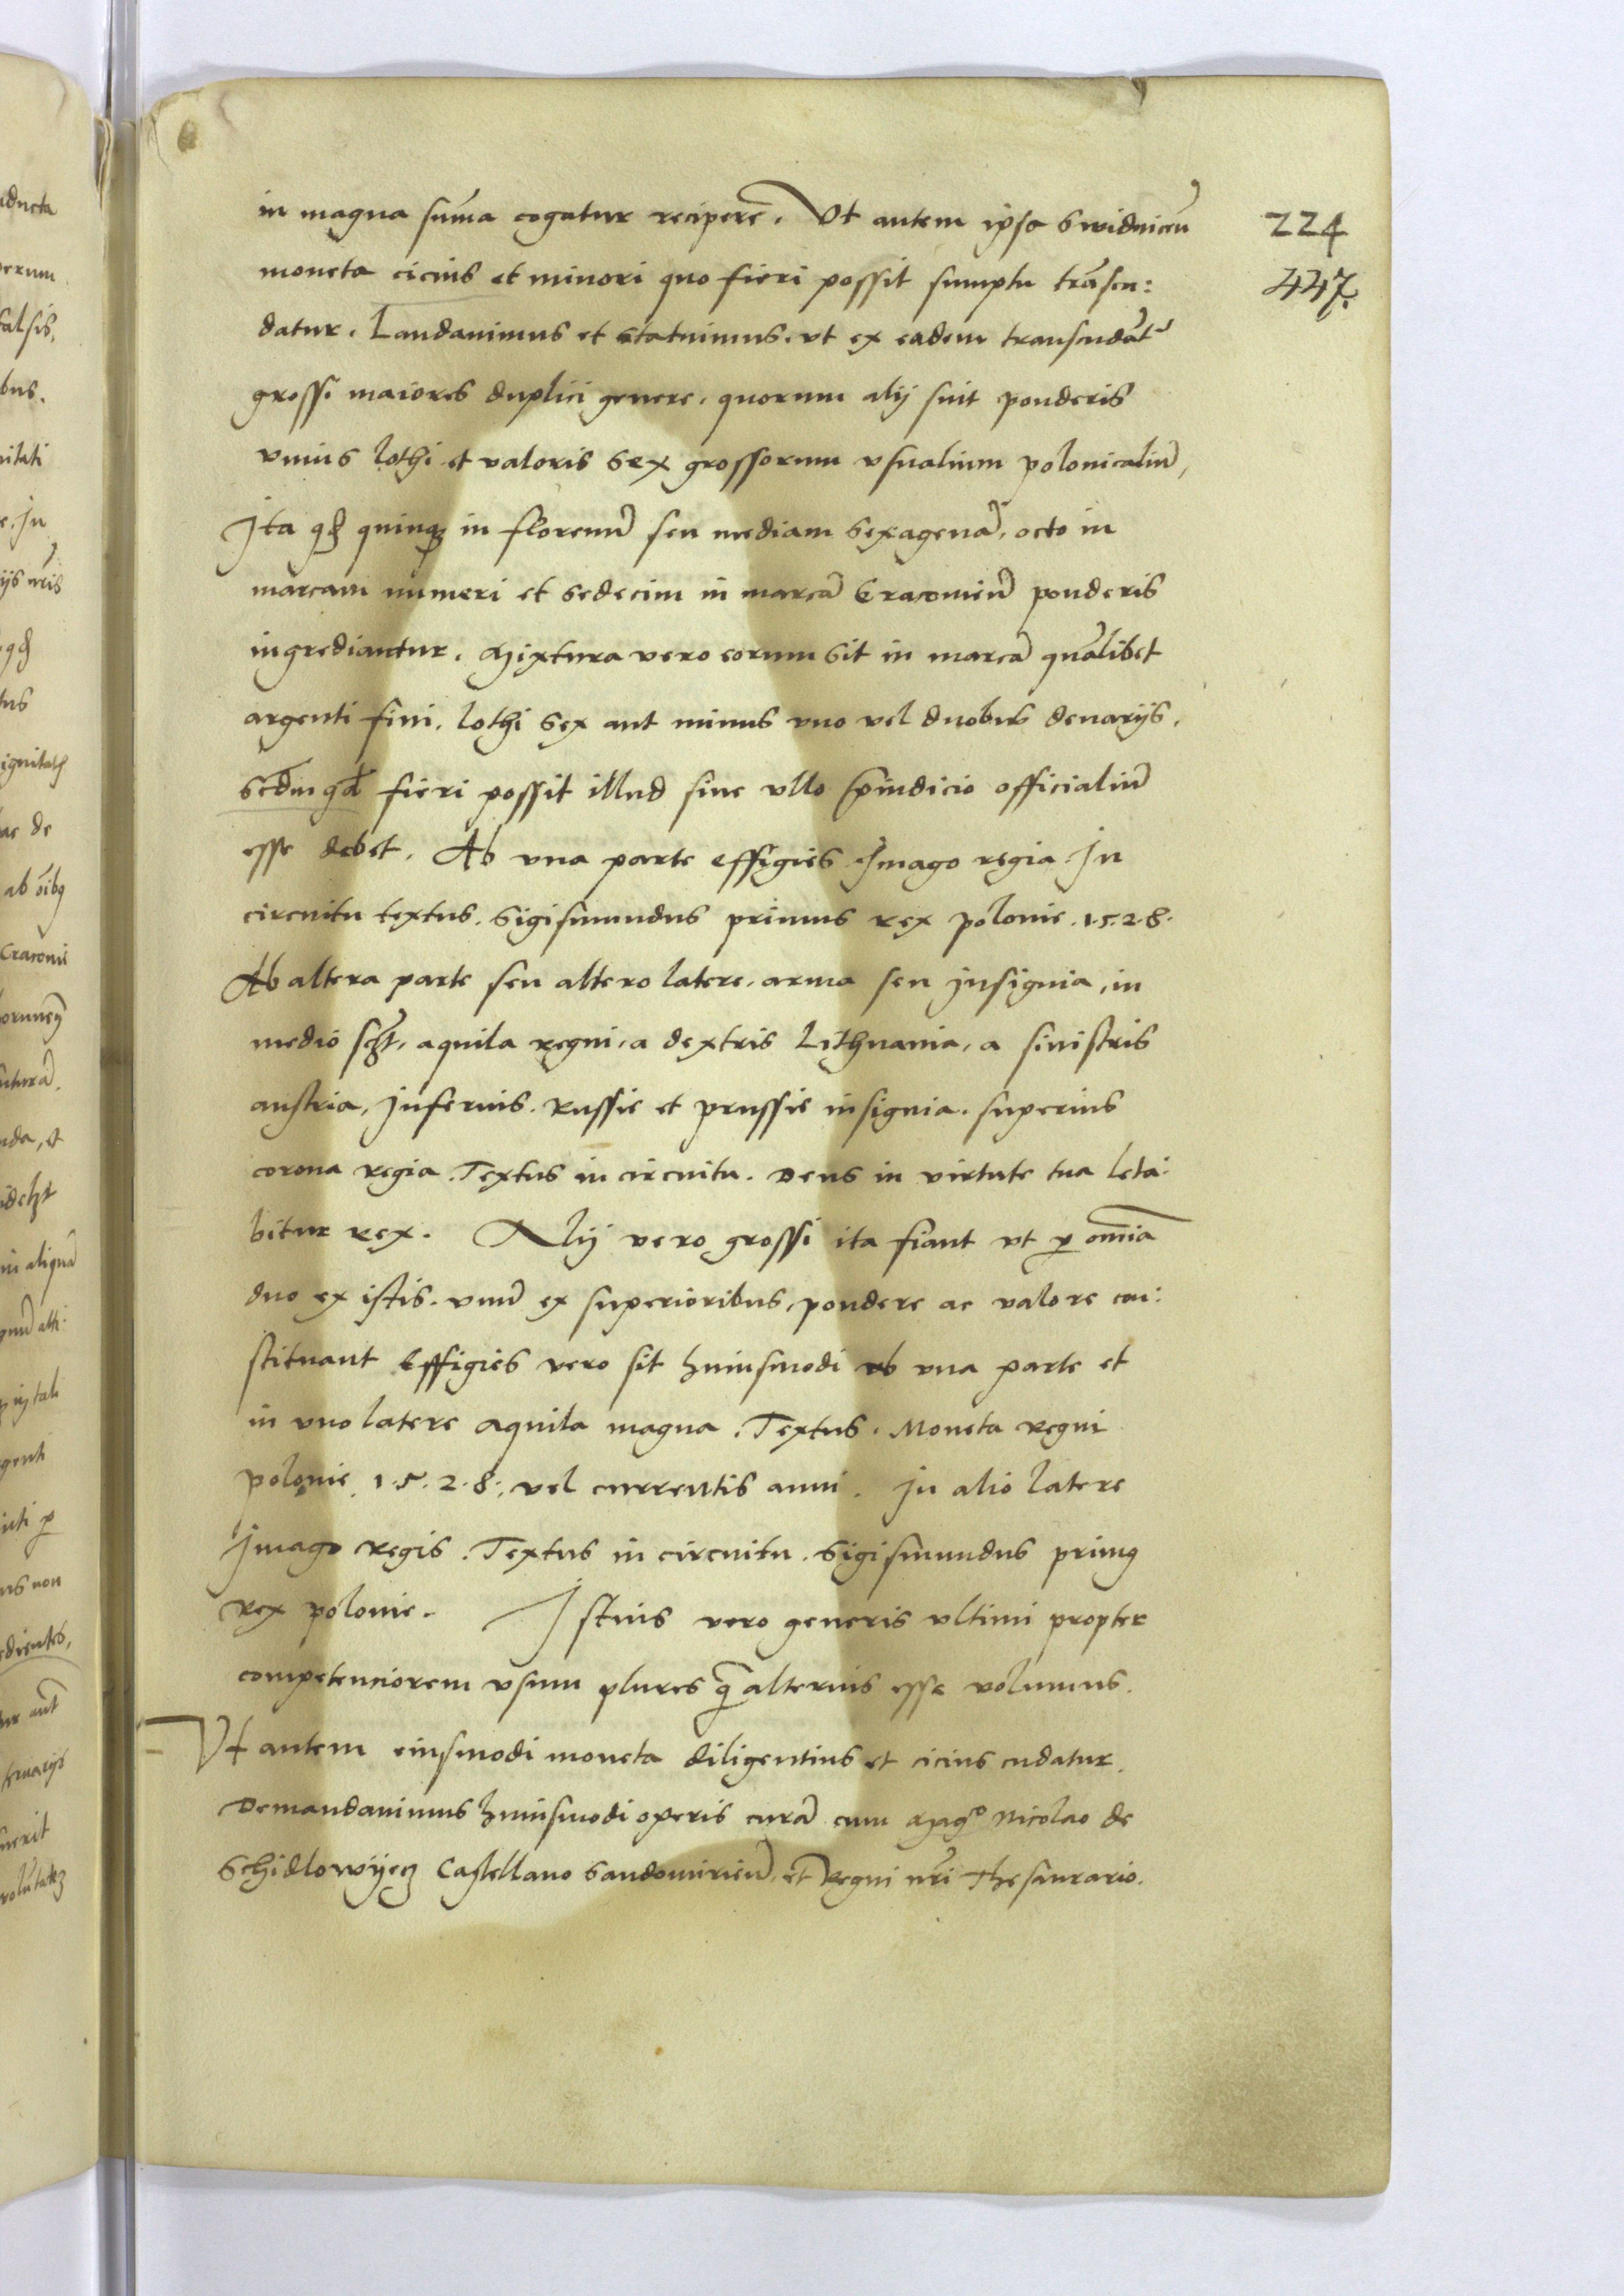 in magna sum̃a cogatur reciperẽ. Vt autem ipsa Swidniceñ
moneta cicius et minori quo fieri possit sumptu trãscu:
datur. Laudauimus et statuimus. vt ex eadem transcudãt᷑
grossi maiores duplici genere, quorum alij sint ponderis
vnius lothi et valoris sex grossorum vsualium polonicaliũ,
Ita ꝙ quinqꝫ in florenũ seu mediam sexagenã, octo in
marcam numeri et sedecim in marcã Cracouieñ ponderis
ingrediantur. Mixtura vero eorum sit in marcã quãlibet
argenti fini. lothi sex aut minus vno vel duobus denarijs,
scd̃m qđ fieri possit illud sine vllo p̱iudicio officialiũ
esse debet. Ab vna parte effigies Imago regia. In
circuitu textus. Sigismundus primus rex polonie. 1.5.2.8.
Ab altera parte seu altero latere. arma seu insignia, in
medio scꝫt, aquila regni, a dextris Lithuania, a sinistris
austria, inferius. russie et prussie insignia. superius
corona regia. Textus in circuitu. Deus in virtute tua leta:
bitur rex. Alij vero grossi ita fiant vt ꝑ om̃ia
duo ex istis. vnũ ex superioribus, pondere ac valore con:
stituant Effigies vero sit huiusmodi ab vna parte et
in vno latere aquila magna. Textus. Moneta regni
polonie. 1.5.2.8. vel currentis anni. In alio latere
Imago regis. Textus in circuitu. Sigismundus primꝰ
rex polonie. Istius vero generis vltimi propter
competenciorem vsum plures q̃ alterius esse volumus.
Vt autem eiusmodi moneta diligentius et cicius cudatur.
Demandauimus huiusmodi operis curã cum Magᶜᵒ Nicolao de
Schidlowyecz Castellano Sandomirieñ, et Regni nr̃i Thesaurario.
224
447.